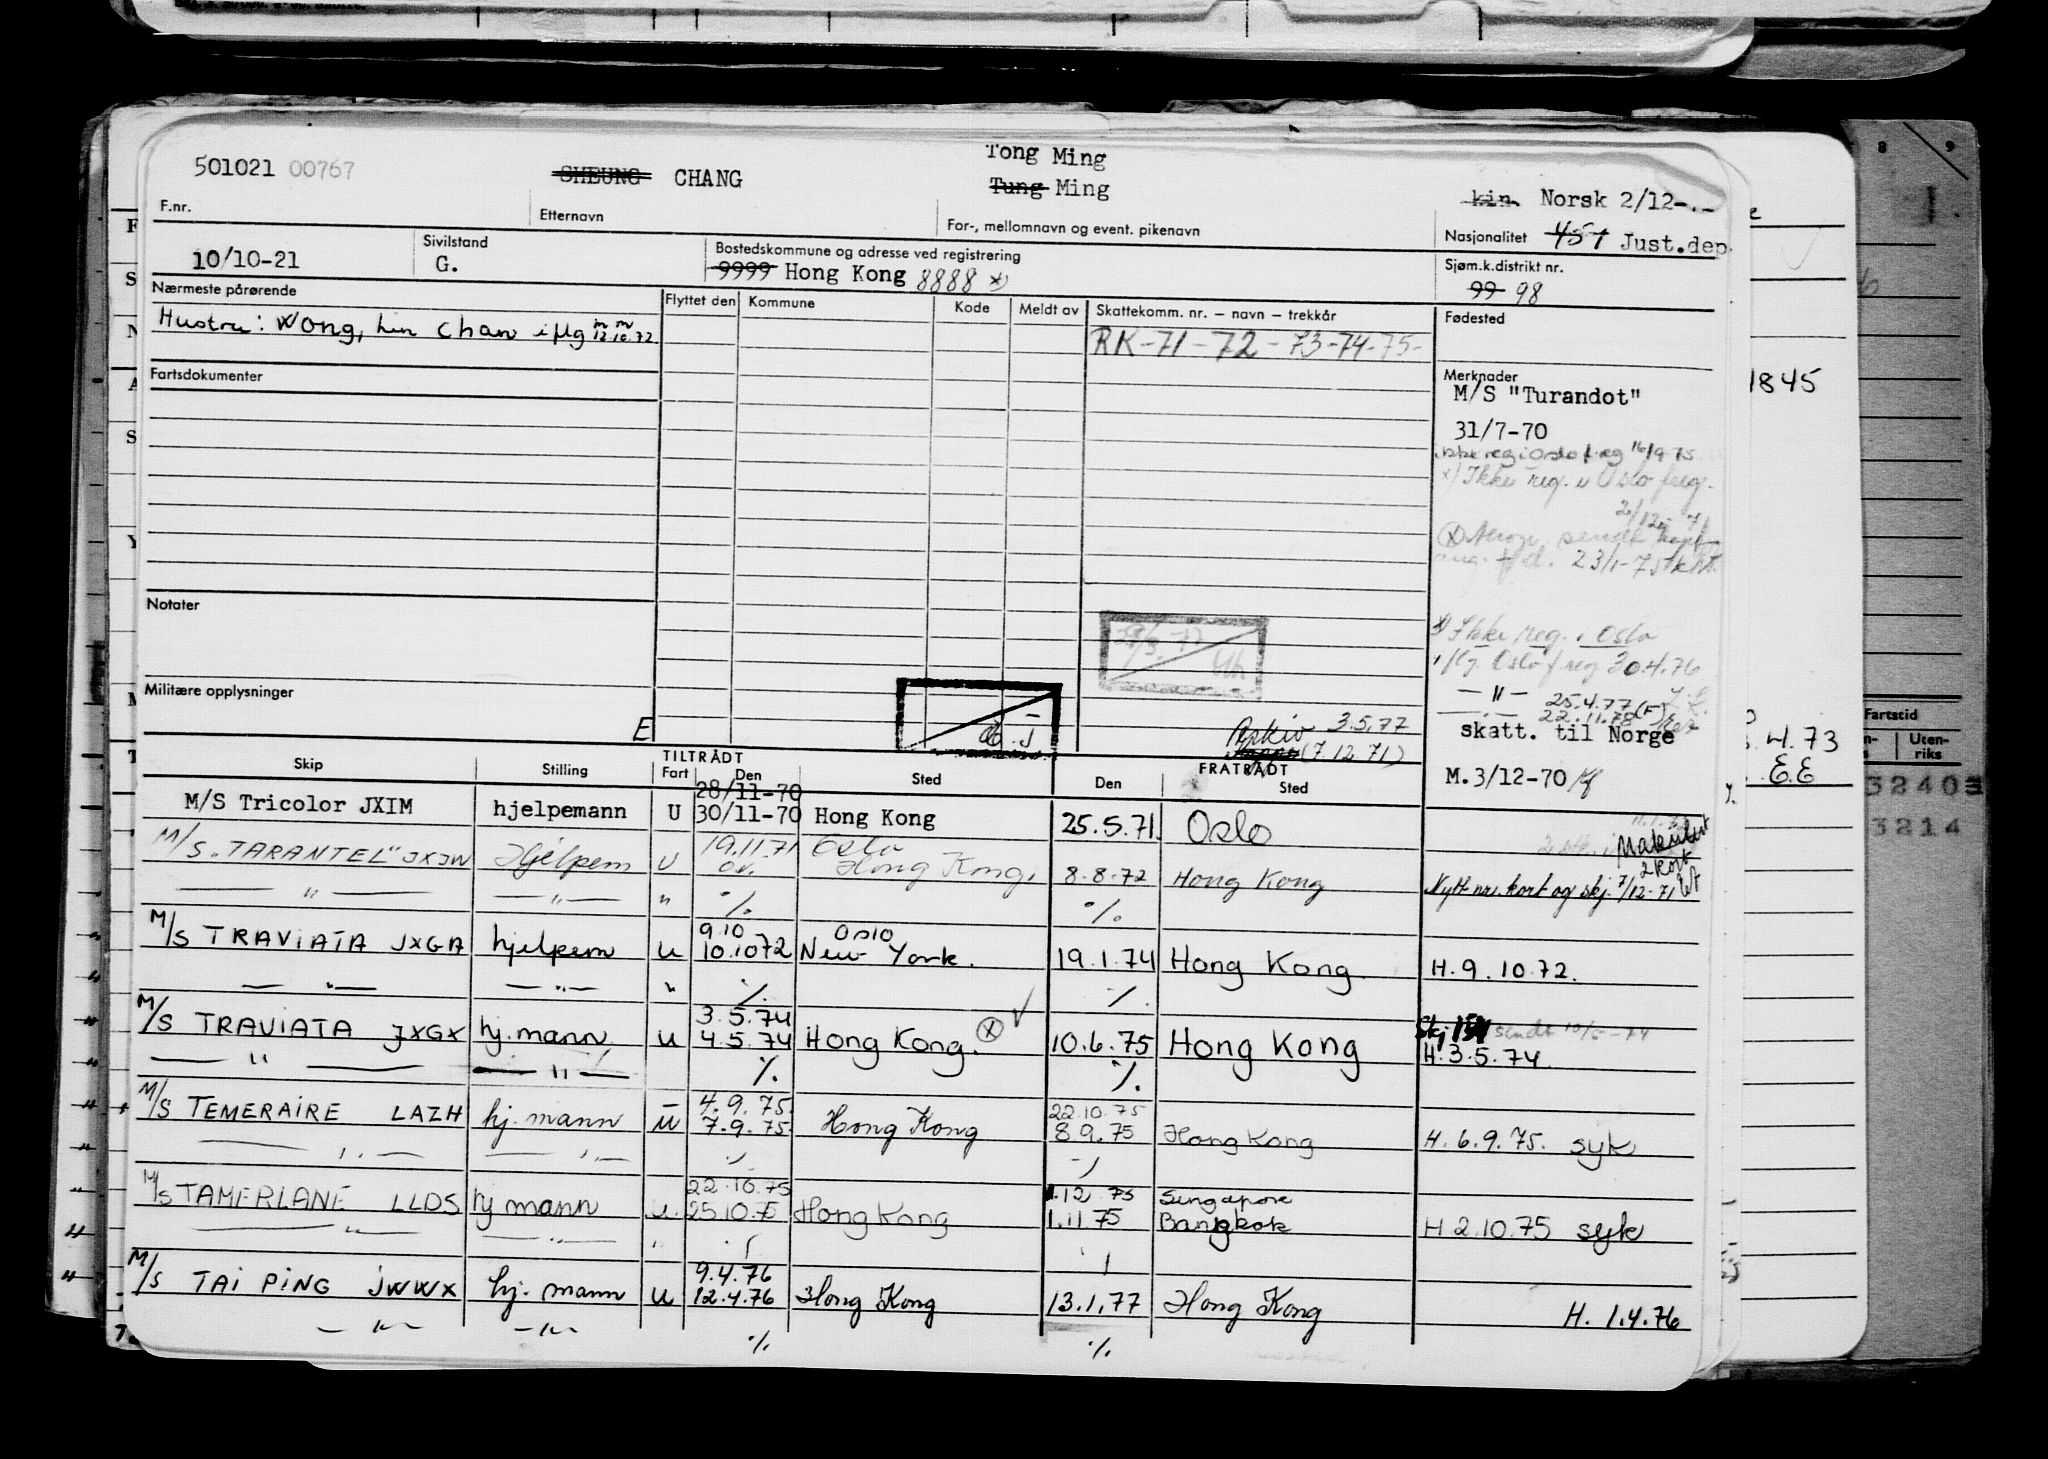 501021 00767
SHEUNG CHANG
Tong Ming
Tung Ming
kin. Norsk 2/12-
F.nr.
Etternavn
For-, mellomnavn og event. pikenavn
Nasjonalitet 457 Just.dep.
10/10-21
Sivilstand
G.
Bostedskommune og adresse ved registrering
9999 Hong Kong 8888 x)
Sjøm.k.distrikt nr.
99 98
Nærmeste pårørende
Flyttet den Kommune Kode Meldt av Skattekomm. nr. — navn — trekkår
Fødested
Hustru: Wong, Lin Chan iflg 12.10.72
RK-71-72-73-74-75-
Fartsdokumenter
Merknader
M/S "Turandot"
31/7-70
ikke reg i Oslo f.reg 16/9 75
x) Ikke reg. i Oslo freg.
2/12-71
sendt
23/1-75
Notater
x) Ikke reg. i Oslo
i flg. Oslo f reg 30.4.76
— " — 25.4.77
22.11.78
Militære opplysninger
E
Arkiv 3.5.77
(7.12.71)
skatt. til Norge
M.3/12-70
TILTRÅDT
FRATRÅDT
Skip Stilling Fart Den Sted Den Sted
28/11-70
M/S Tricolor JXIM hjelpemann U 30/11-70 Hong Kong 25.5.71. Oslo
Makulert
2 kort
19.11 71 Oslo
M/S "TARANTEL" JXJW Hjelpem U Hong Kong. 8.8.72 Hong Kong Nytt nr. kort og skj. 7/12-71
— " — — " — " %. %.
9.10 Oslo
M/S TRAVIATA JXGA hjelpem u 10.1072 New York. 19.1.74 Hong Kong. H. 9. 10. 72.
— " — — " — " %. %.
3.5.74
M/S TRAVIATA JXGX hj. mann u 4.5.74 Hong Kong. (x) 10.6.75 Hong Kong H. 3.5.74.
Skj 151 sendt 10/5-74
— " — — " — %. %.
4.9.75. 22.10.75
M/S TEMERAIRE LAZH hj. mann u 7.9.75. Hong Kong 8.9.75 Hong Kong H. 6.9.75. syk
— " — — " —
22.10.75 1.12 75 Singapore
M/S TAMERLANE LLDS hj mann u. 25.10.75 Hong Kong 1.11.75 Bangkok H 2.10.75 syk
— " — — " — "
9.4.76
M/S TAI PING JWWX hj. mann u 12.4.76 Hong Kong 13.1.77 Hong Kong H. 1.4.76
— " — — " — %. %.
8 9
1845
4.73
E.E
Fartstid
Uten-
riks
3240
3214